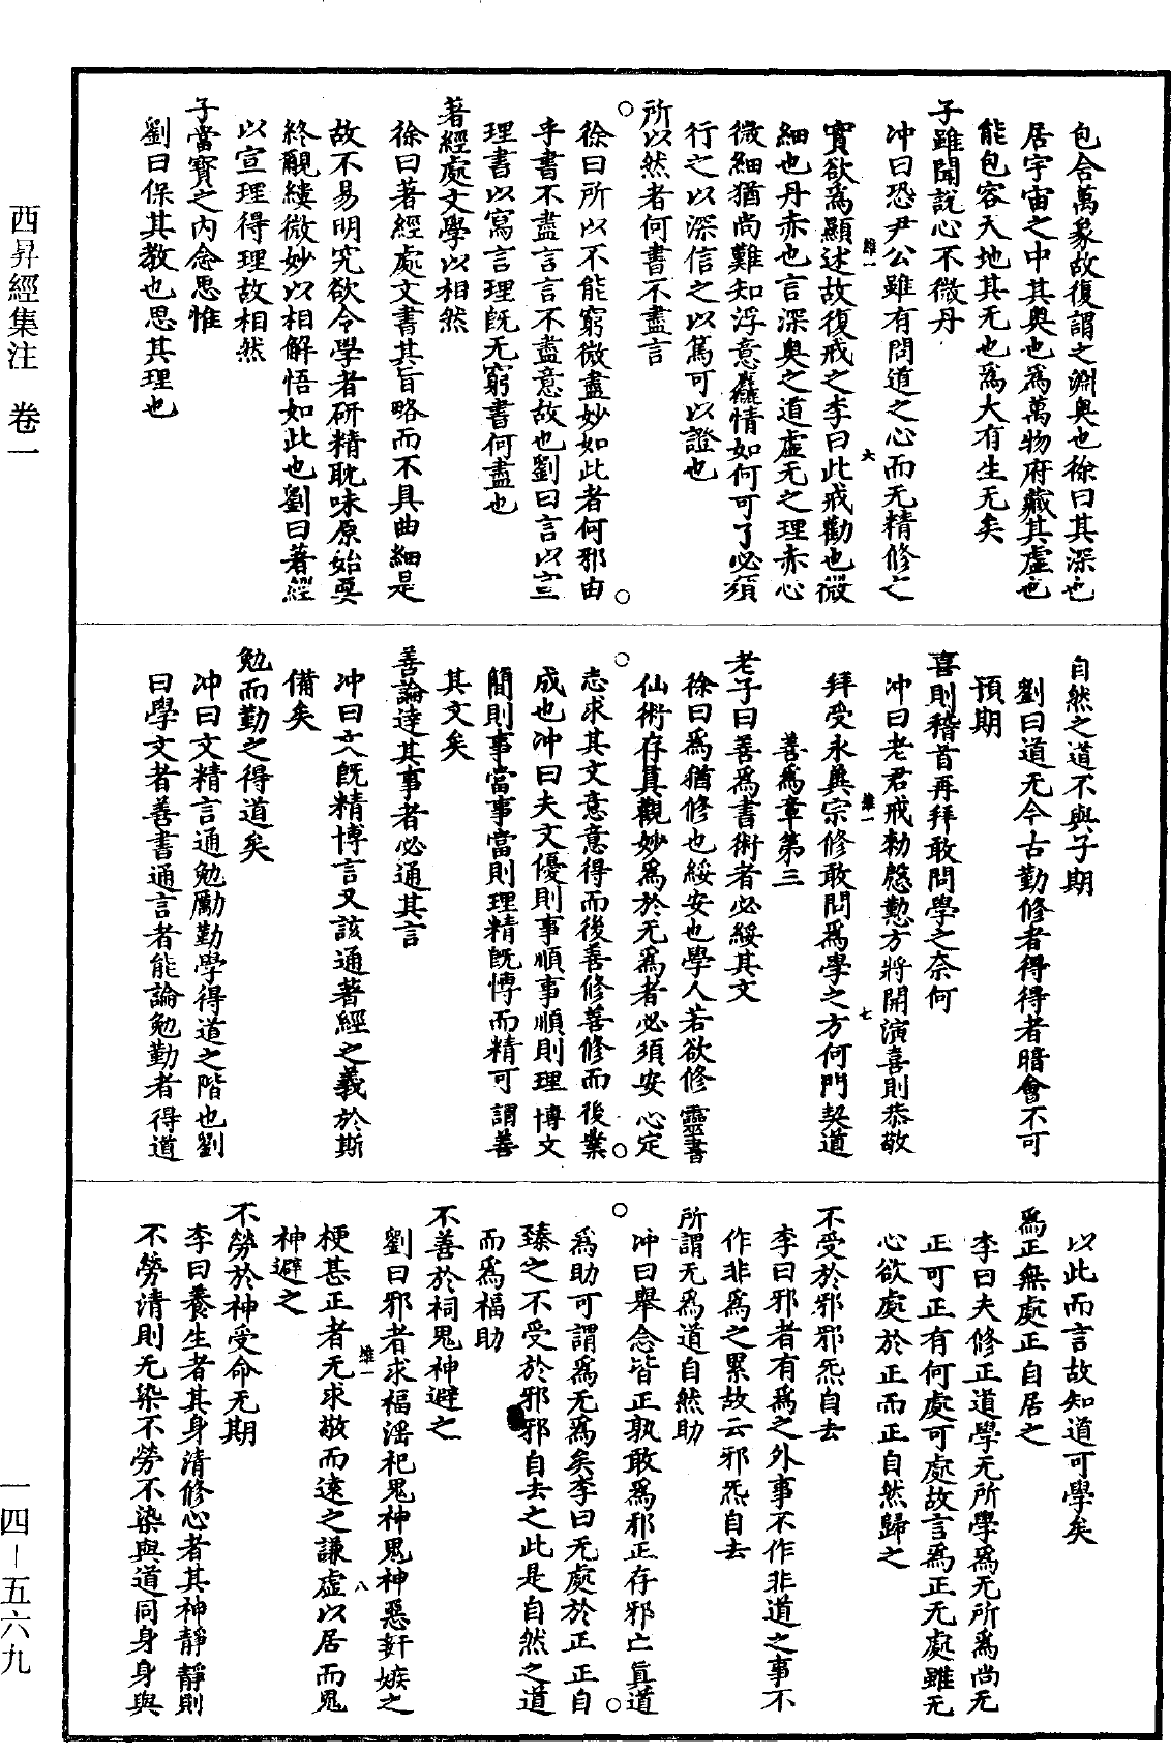 包含萬象故復謂之淵奧也徐曰其深也
居宇宙之中其奧也爲萬物府藏其虛也
能包容天地其无也爲大有生无矣
子雖聞說心不微丹
沖曰恐尹公雖有問道之心而无精修之
實欲爲顯述故復戒之李曰此戒勸也微
細也丹赤也言深奧之道虛无之理赤心
微細猶尚難知浮意麤情如何可了必須
行之以深信之以篤可以證也
所以然者何書不盡言
徐曰所以不能窮微盡妙如此者何邪由
乎書不盡言言不盡意故也劉曰言以宣
理書以寫言理旣无窮書何盡也
著經處文學以相然
徐曰著經處文書其旨略而不具曲細是
故不易明究欲令學者硏精耽味原始要
終覼縷微妙以相解悟如此也劉曰著經
以宣理得理故相然
子當寶之内念思惟
劉曰保其教也思其理也
自然之道不與子期
劉曰道无今古勤修者得得者暗會不可
預期
喜則稽首再拜敢問學之奈何
沖曰老君戒勑慇懃方將開演喜則恭敬
拜受永奧宗修敢問爲學之方何門契道
善爲章第三
老子曰善爲書術者必綏其文
徐曰爲猶修也綏安也學人若欲修靈書
仙術存眞觀妙爲於无爲者必須安心定
志求其文意意得而後善修善修而後業
成也沖曰夫文優則事順事順則理博文
簡則事當事當則理精旣博而精可謂善
其文矣
善論達其事者必通其言
沖曰文旣精博言又該通著經之義於斯
備矣
勉而勤之得道矣
沖曰文精言通勉勵勤學得道之階也劉
曰學文者善書通言者能論勉勤者得道
以此而言故知道可學矣
爲正無處正自居之
李曰夫修正道學无所學爲无所爲尚无
正可正有何處可處故言爲正无處雖无
心欲處於正而正自然歸之
不受於邪邪炁自去
李曰邪者有爲之外事不作非道之事不
作非爲之累故云邪炁自去
所謂无爲道自然助
沖曰舉念皆正孰敢爲邪正存邪亡眞道
爲助可謂爲无爲矣李曰无處於正正自
臻之不受於邪邪自去之此是自然之道
而爲福助
不善於祠鬼神避之
劉曰邪者求福淫祀鬼神鬼神惡姧嫉之
梗甚正者无求敬而遠之謙虛以居而鬼
神避之
不勞於神受命无期
李曰養生者其身清修心者其神靜靜則
不勞清則无染不勞不染與道同身身與
維一
六
維一
七
維一
八
西昇經集注 卷一
一四—五六九